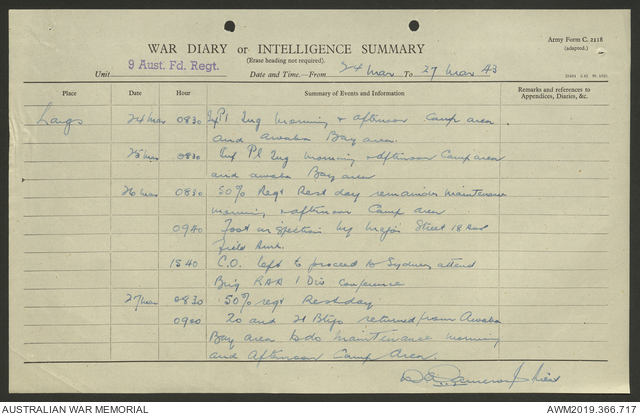 Army Form C. 2118
(adapted.)
WAR DIARY or INTELLIGENCE SUMMARY
(Erase heading not required).
Unit 9 Aust. Fd. Regt. Date and Time.—From 24 Mar To 27 Mar 43
Place Date Hour Summary of Events and Information Remarks and references to Appendices, Diaries, &c.
Largs 24 Mar 0830 Pl Tng Morning & afternoon Camp area
and Awaba Bay area.
25 Mar 0830 Pl Tng morning & afternoon Camp area
and awaba Bay area
26 Mar 0830 50% Regt Rest day remainder Maintenance
morning & afternoon Camp area
0940 Foot inspection by Major Street 18 Aust
Field Amb.
1540 C.O. left to proceed to Sydney attend
Brig RAA 1 Div Conference
27 Mar 0830 50% regt Rest day
0900 20 and 21 Btys returned from Awaba
Bay area to do Maintenance Morning
and Afternoon Camp Area.
AUSTRALIAN WAR MEMORIAL
AWM2019.366.717